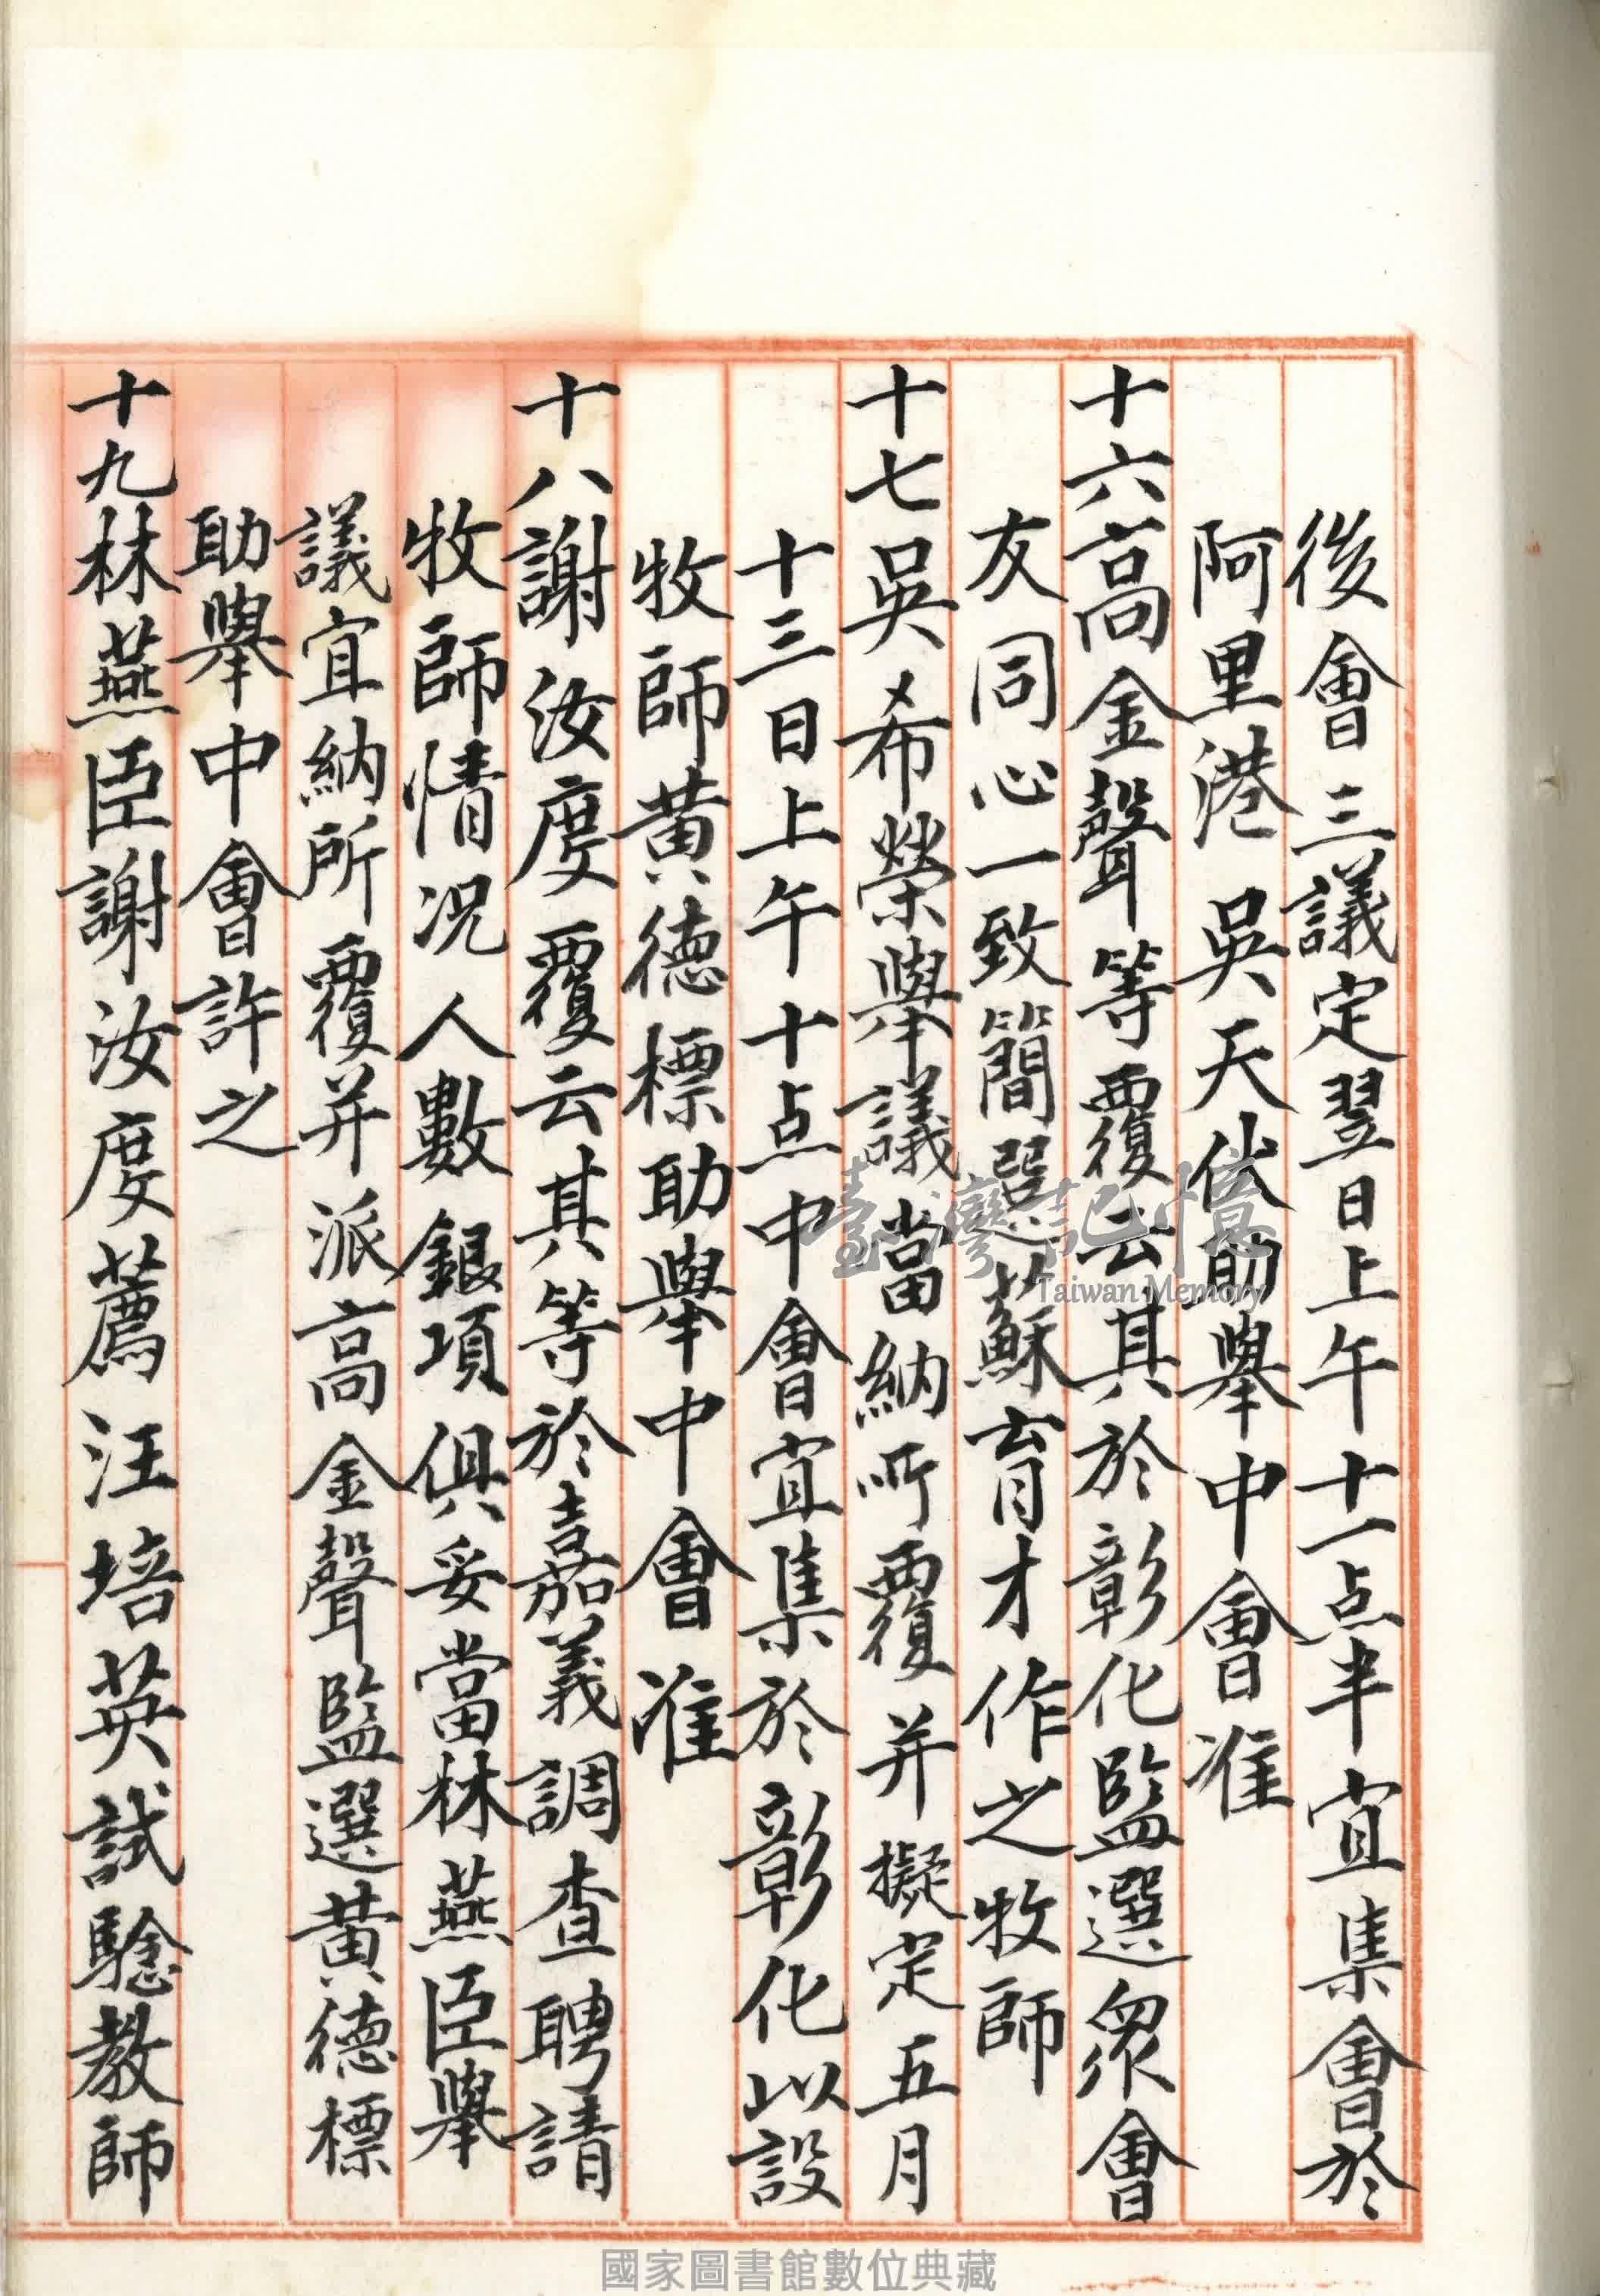 後會三議定翌日上午十一点半宜集會於
阿里港 吳天賜助舉中會准
十六高金聲等覆云其於彰化監選眾會
友同心一致簡選蘇育才作之牧師
十七吳希榮舉議當納所覆并擬定五月
十三日上午十点中會宜集於彰化以設
牧師黃德標助舉中會准
十八謝汝度覆云其等於嘉義調查聘請
牧師情況人數銀項俱妥當林燕臣舉
議宜納所覆并派高金聲監選黃德標
助舉中會許之
十九林燕臣謝汝度薦汪培英試驗教師
臺灣記憶
Taiwan Memory
國家圖書館數位典藏